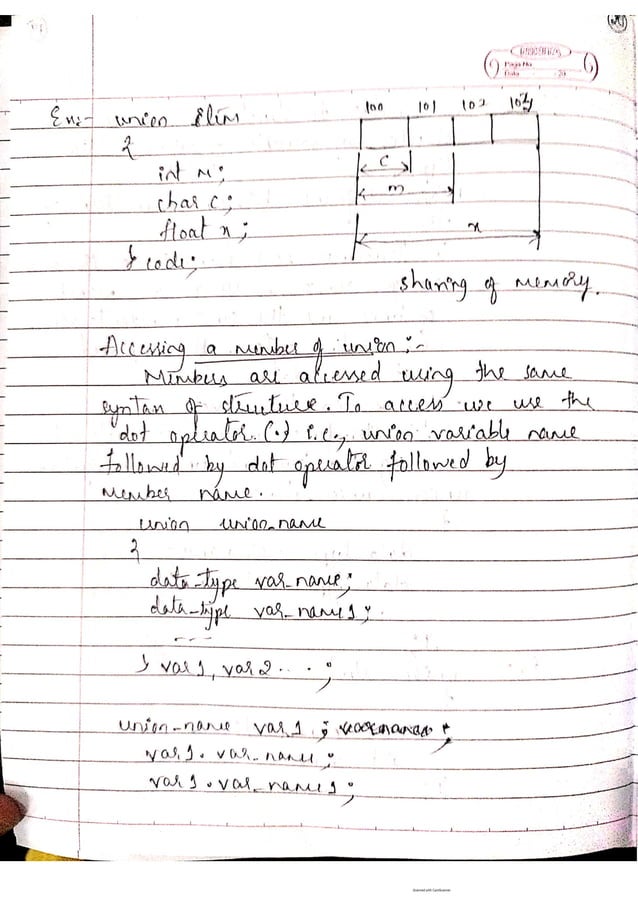 Page No.
Date 20
100 101 102 103
Ex:- union
{
int m;
c
char c;
m
float x;
x
} code;
sharing of memory.
Accessing a member of union:-
Members are accessed using the same
syntax of structure. To access we use the
dot operator (.) i.e., union variable name
followed by dot operator followed by
member name.
union union_name
{
data-type var_name;
data-type var_name1;
----
} var1, var2...;
union-name var1;
var1.var_name;
var1.var_name1;
Scanned with CamScanner